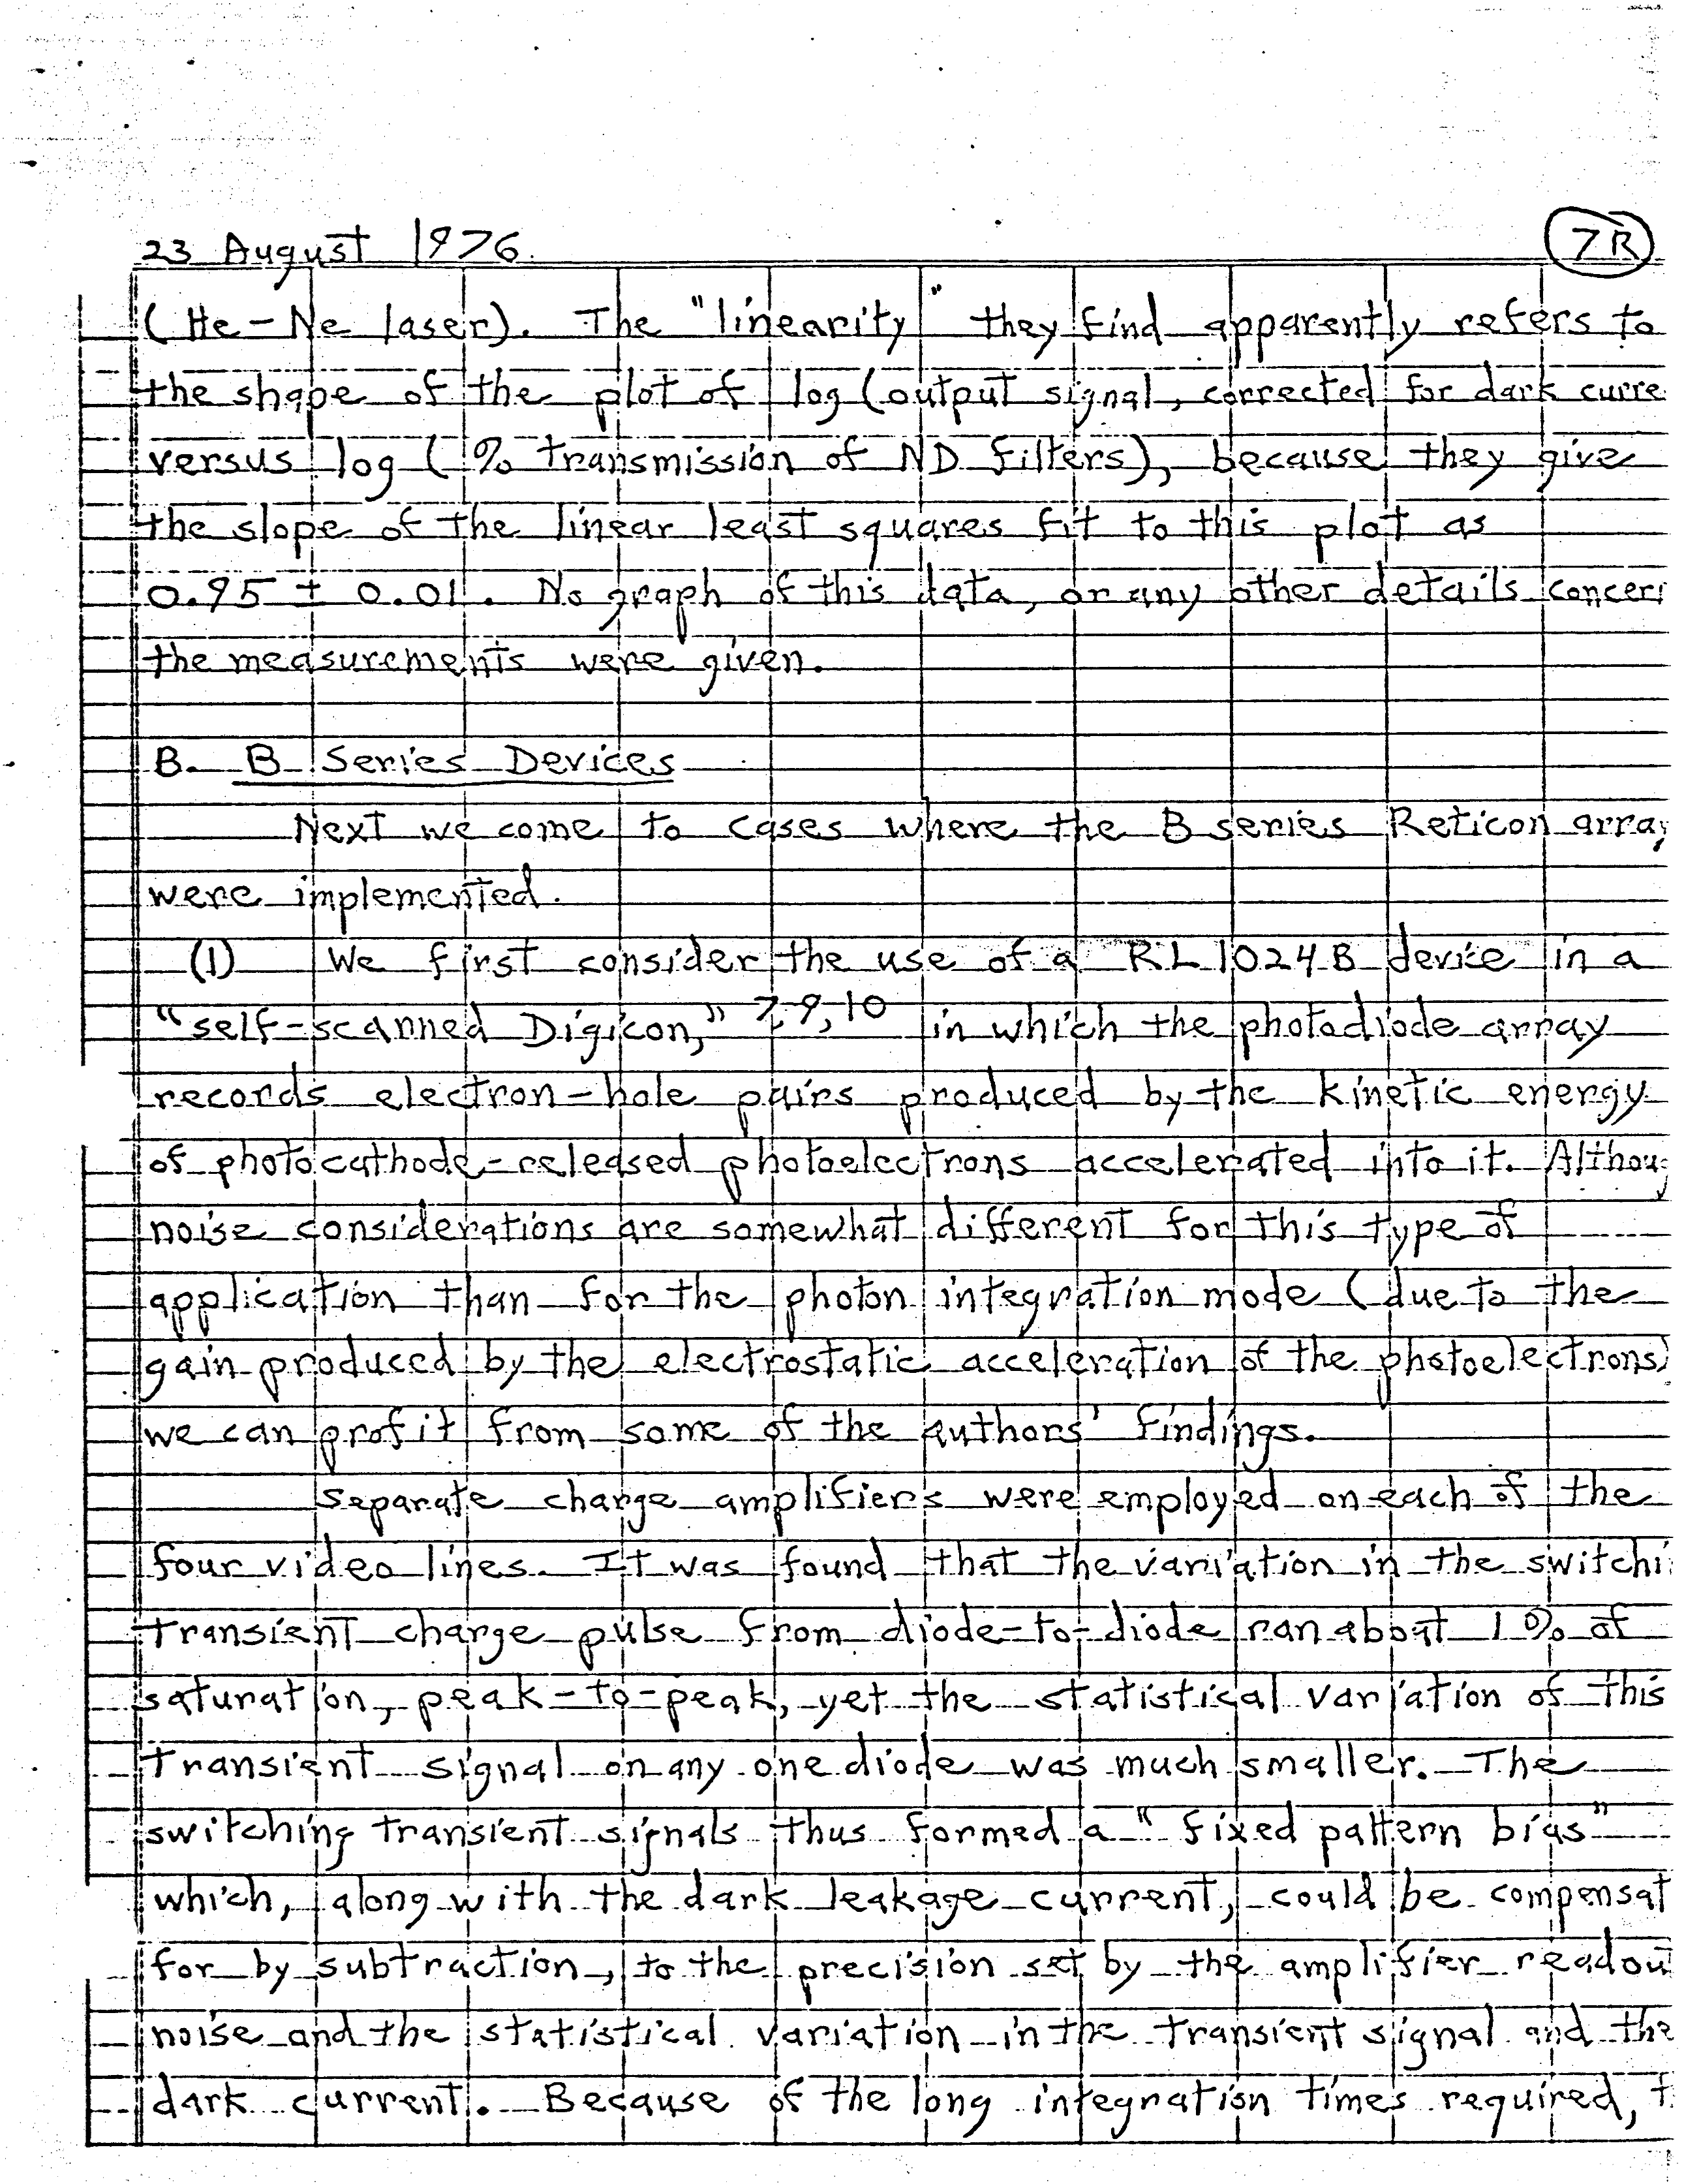 23 August 1976
7R
(He-Ne laser). The "linearity" they find apparently refers to
the shape of the plot of log (output signal, corrected for dark curre
versus log (% transmission of ND filters), because they give
the slope of the linear least squares fit to this plot as
0.95 ± 0.01. No graph of this data, or any other details concer
the measurements were given.
B. B Series Devices
Next we come to cases where the B series Reticon array
were implemented.
(1) We first consider the use of a RL1024B device in a
"self-scanned Digicon," 7,9,10 in which the photodiode array
records electron-hole pairs produced by the kinetic energy
of photocathode-released photoelectrons accelerated into it. Althoug
noise considerations are somewhat different for this type of
application than for the photon integration mode (due to the
gain produced by the electrostatic acceleration of the photoelectrons)
we can profit from some of the authors' findings.
Separate charge amplifiers were employed on each of the
four video lines. It was found that the variation in the switchi
transient charge pulse from diode-to-diode ran about 1% of
saturation, peak-to-peak, yet the statistical variation of this
transient signal on any one diode was much smaller. The
switching transient signals thus formed a "fixed pattern bias"
which, along with the dark leakage current, could be compensat
for by subtraction, to the precision set by the amplifier readou
noise and the statistical variation in the transient signal and the
dark current. Because of the long integration times required, t